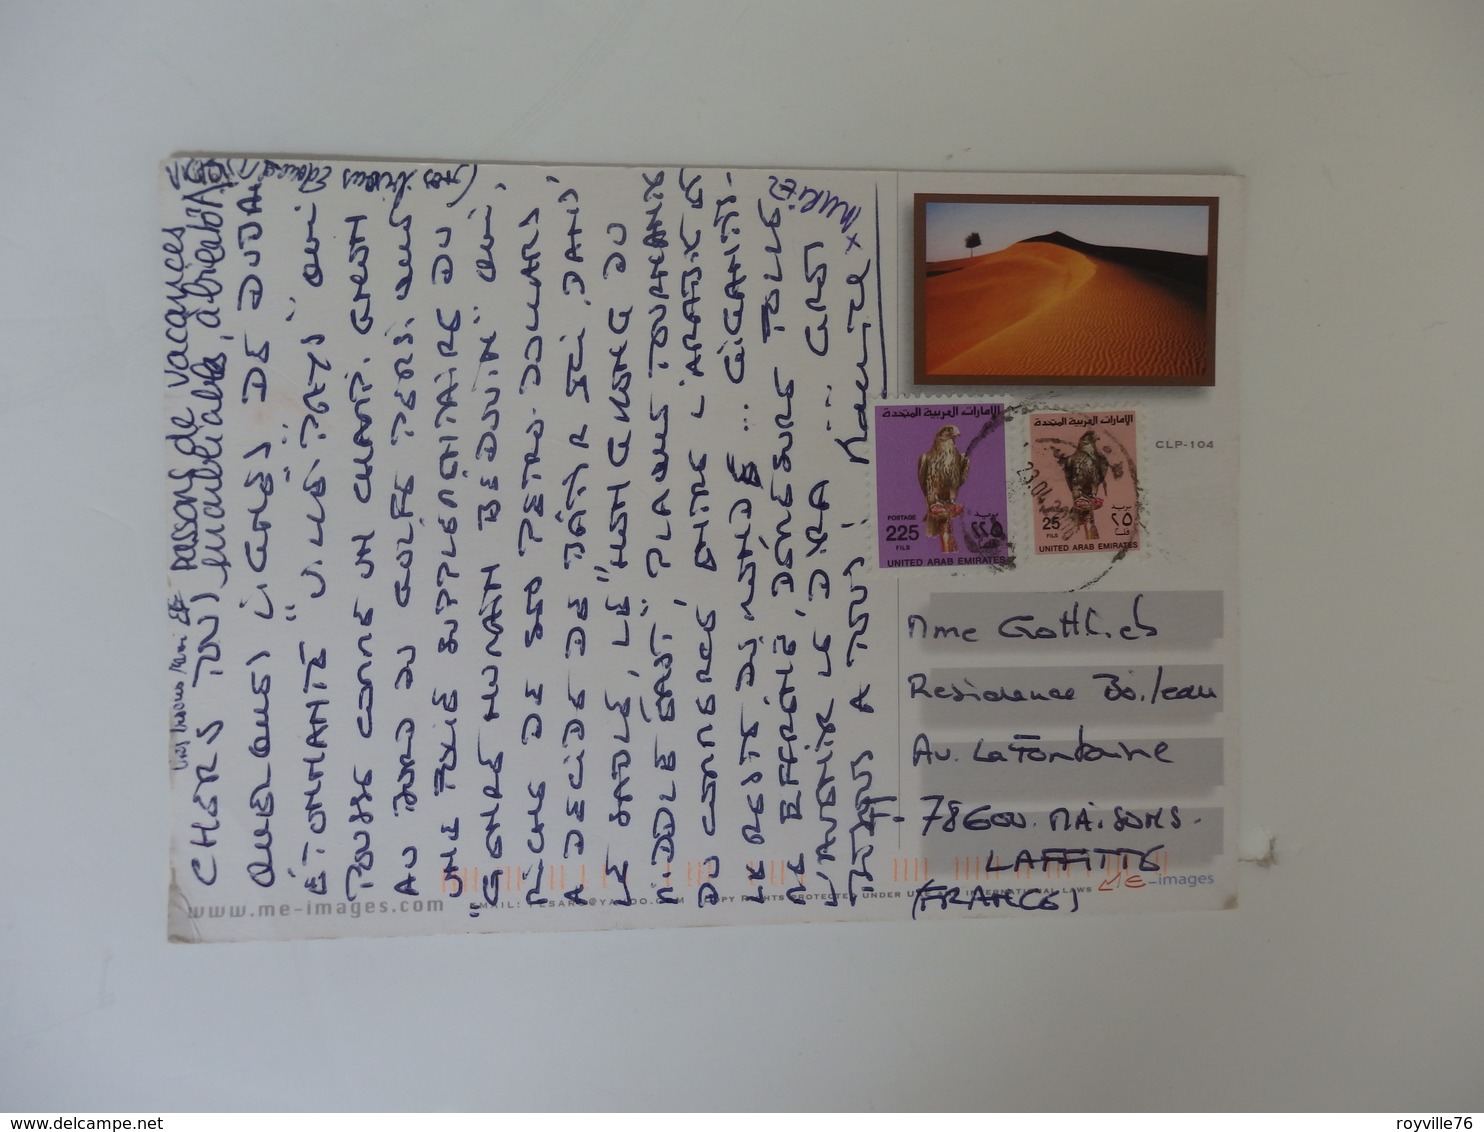 CHERS TOUS,
QUELQUES LIGNES DE DUBAÏ
ÉTONNANTE "VILLE-PAYS" QUI
POUSSE COMME UN CHAMPIGNON
AU BORD DU GOLFE PERSIQUE
UNE FOLIE SUPPLÉMENTAIRE DU
"GENRE HUMAIN BÉDOUIN" QUI,
RICHE DE SES PETRO-DOLLARS,
A DECIDE DE BÂTIR ICI, DANS
LE SABLE, LE "HONG KONG DU
MIDDLE EAST", PLAQUE TOURNANTE
DU COMMERCE ENTRE L'ARABIE ET
LE RESTE DU MONDE... GIGANTIS-
ME EFFRENÉ, DÉMESURE FOLLE
L'AVENIR LE DIRA... C'EST
BISOUS A TOUS,
passons de vacances
inoubliables, à bientôt
Gros bisous Edouard
MURIEL
الإمارات العربية المتحدة
POSTAGE
225
FILS
٢٢٥
UNITED ARAB EMIRATES
الإمارات العربية المتحدة
25
FILS
٢٥
فلسا
UNITED ARAB EMIRATES
23.04.2
CLP-104
Mme Gottlieb
Residence Boileau
Av. La Fontaine
78600. MAISONS-
LAFFITTE
(FRANCE)
www.me-images.com
COPY RIGHTS PROTECTED UNDER INTERNATIONAL LAWS
e-images
delcampe.net
royville76